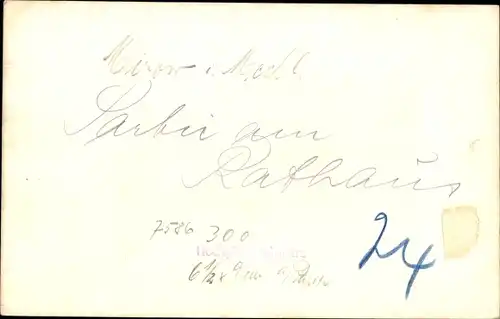 Mirow i. Meckl.
Partie am
Rathaus
7586 300
6½ x 9 cm
24